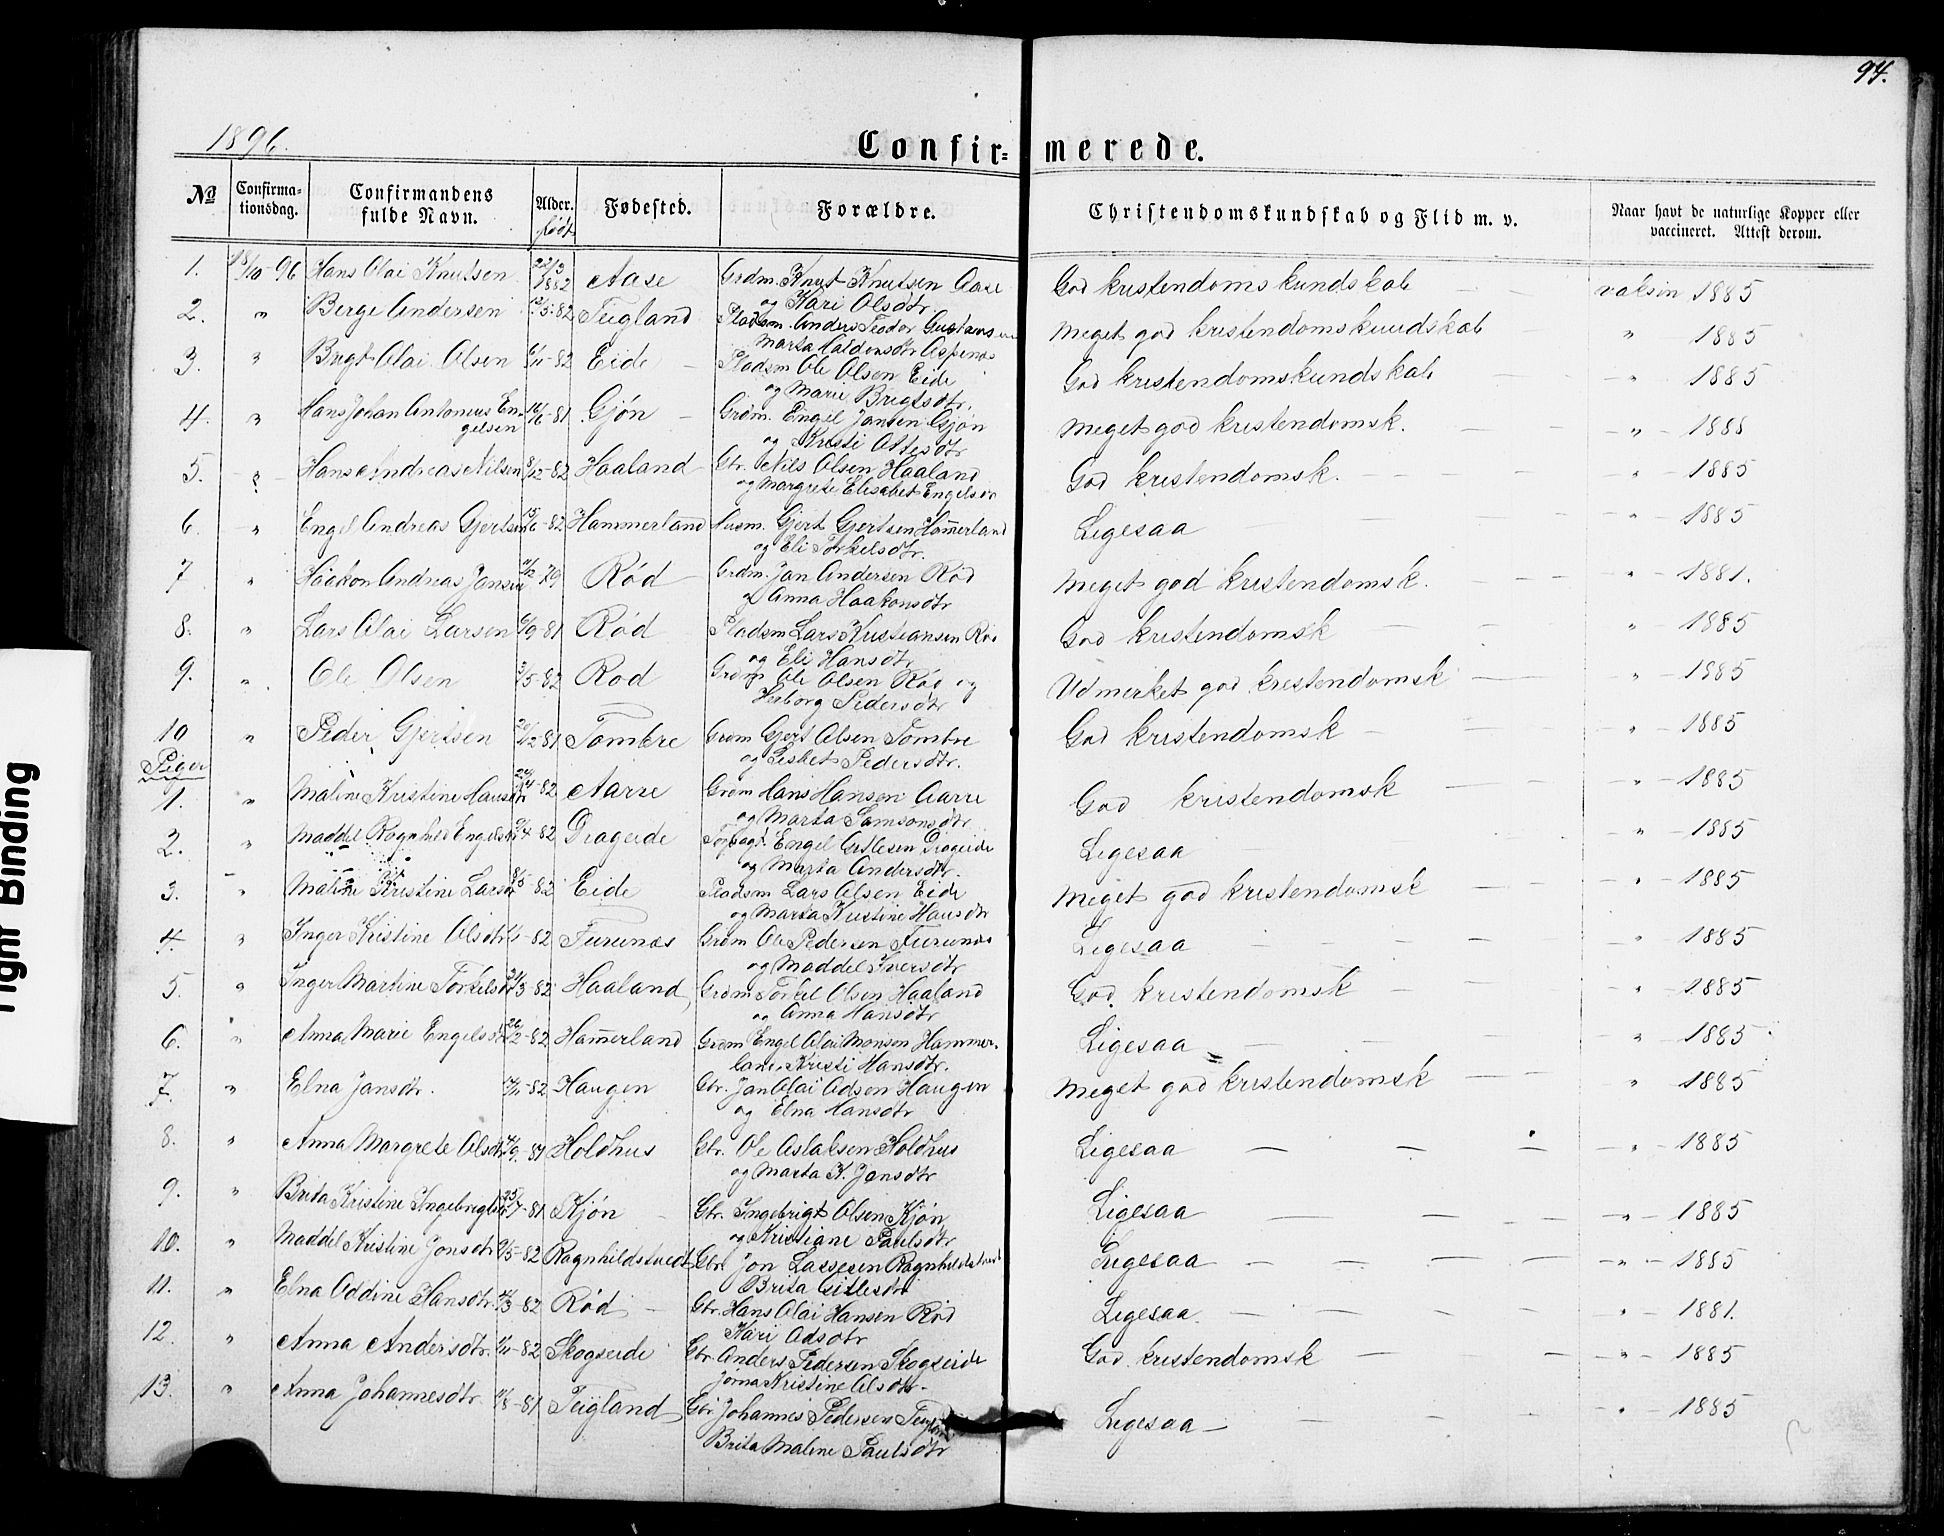 94.
1896.
Confir= merede.
No
Confirma-
tionsdag.
Confirmandens
fulde Navn.
Alder.
født
Fødested.
Forældre.
Christendomskundskab og Flid m. v.
Naar havt de naturlige Kopper eller
vaccineret. Attest derom.
1. 18/10-96 Hans Olai Knutsen 22/3 1882 Aase Grdm. Knut Knutsen Aase God kristendomskundskab vaksin 1885
og Kari Olsdtr.
2. " Berge Andersen 12/5-82 Teigland Pladsm. Anders Teodor Gustavsen Meget god kristendomskundskab " 1885
Marta Haldorsdtr Aspenæs
3. " Brigt Olai Olsen 6/11-82 Eide Pladsm Ole Olsen Eide God kristendomskundskab " 1885
og Marie Brigtsdtr.
4. " Hans Johan Antonius En- 16/6-81 Gjøn Grdm. Engel Jansen Gjøn Meget god kristendomsk. " 1885
gelsen
og Kristi Attesdtr
5. " Hans Andreas Nilsen 8/12-82 Haaland Gbr. Nils Olsen Haaland God kristendomsk. " 1885
og Margrete Elisabet Engelsdtr
6. " Engel Andreas Gjertsen 15/6-82 Hammerland Husm. Gjert Gjertsen Hamerland Ligesaa " 1885
og Eli Torkelsdtr.
7 " Haakon Andreas Jansen 11/12 79 Rød Grdm. Jan Andersen Rød Meget god kristendomsk. " 1881.
og Anna Haakonsdtr
8. " Lars Olai Larsen 6/9-81 Rød Pladsm Lars Kristiansen Rød God kristendomsk " 1885
og Eli Hansdtr
9. " Ole Olsen 3/5-82 Rød Grdm Ole Olsen Rød og Udmerket god kristendomsk " 1885
Herborg Pedersdtr
10 " Peder Gjertsen 20/12 81 Tombre Grdm Gjert Olsen Tombre God kristendomsk " 1885
og Lisbet Pedersdtr.
Piger
1. " Maline Kristine Hansdtr 24/4-82 Aarre Grdm Hans Hansen Aarre God kristendomsk " 1885
og Marta Samsonsdtr
2. " Maddel Ragnhild Engelsdtr 9/4-82 Drageide Engel Atlesen Drageide Ligesaa " 1885
og Marta Andersdtr.
3. " Maline Kristine Larsdtr 8/5-82 Eide Pladsm Lars Olsen Eide Meget god kristendomsk " 1885
og Marta Kristine Hansdtr
4. " Inger Kristine Olsdtr 1/1-82 Furunæs Grdm Ole Pedersen Furunæs Ligesaa " 1885
og Maddel Iversdtr
5. " Inger Martine Torkelsdtr 21/3-82 Haaland Grdm Torkel Olsen Haaland God kristendomsk " 1885
og Anna Hansdtr
6. " Anna Marie Engelsdtr 26/2-82 Hamerland Grdm Engel Olai Monsen Hammer- Ligesaa " 1885
land, Kristi Hansdtr.
7. " Elna Jansdtr. Haugen Gbr. Jan Olai Odsen Haugen Meget god kristendomsk " 1885
og Elna Hansdtr
8. " Anna Margrete Olsdtr Holdhus Gbr. Ole Aslaksen Holdhus Ligesaa " 1885
og Marta K. Jansdtr
9. " Brita Kristine Ingebrigtsdtr 25/7-81 Kjøn Gbr. Ingebrigt Olsen Kjøn Ligesaa " 1885
og Kristiane Paulsdtr
10. " Maddel Kristine Jonsdtr 9/5-82 Ragnhildstvedt Gbr. Jon Lassesen Ragnhildstvedt Ligesaa " 1885
Brita Gitlesdtr
11. " Elna Oddine Hansdtr. Rød Gbr. Hans Olai Hansen Rød Ligesaa. " 1881.
Kari Odsdtr
12. " Anna Andersdtr. 1/11-82 Skogseide Gbr. Anders Pedersen Skogseide God kristendomsk " 1885
Jorna Kristine Olsdtr.
13. " Anna Johannesdtr. 11/8-81 Teigland Gbr. Johannes Pedersen Teigland Ligesaa " 1885
Brita Maline Paulsdtr
Tight Binding